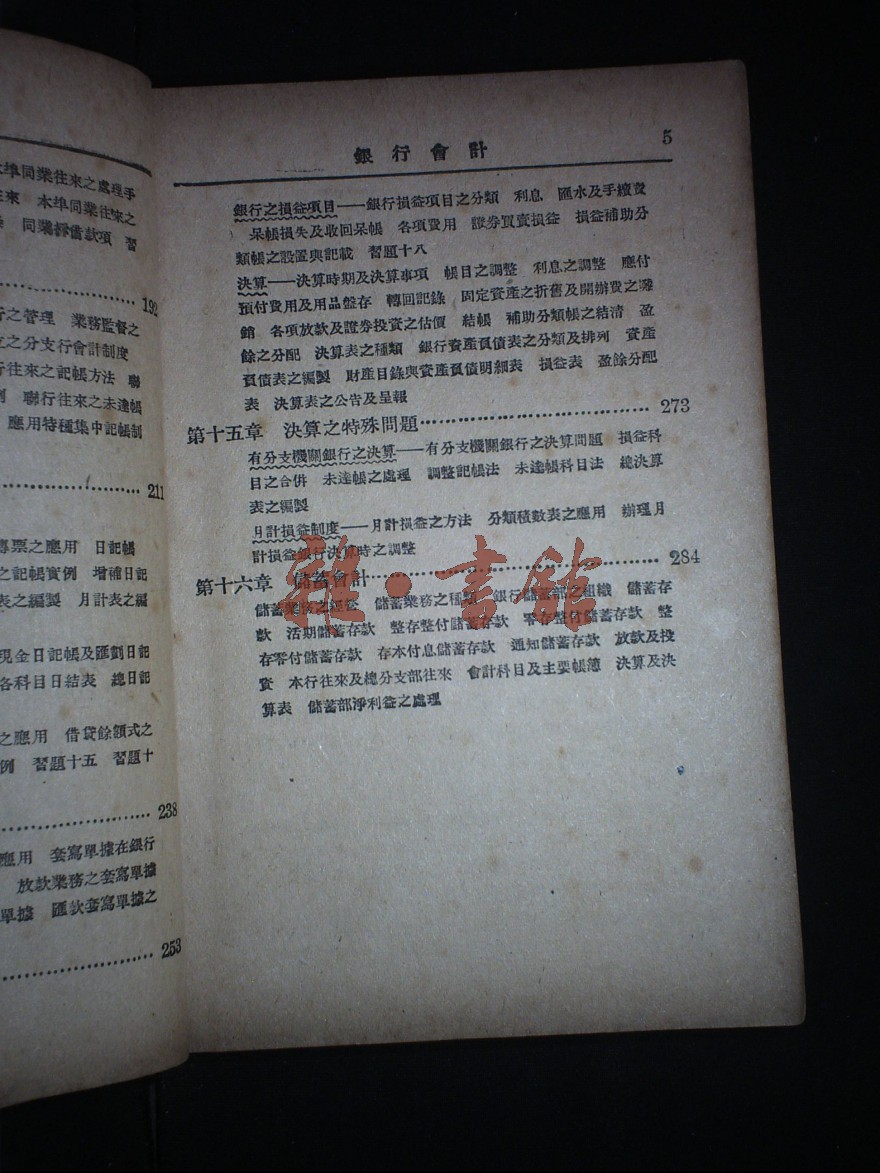 本埠同業往來之處理手
往來　本埠同業往來之
同業拆借款項　習
192
行之管理　業務監督之
立之分支行會計制度
行往來之記帳方法　聯
例　聯行往來之未達帳
應用特種集中記帳制
211
傳票之應用　日記帳
之記帳實例　增補日記
表之編製　月計表之編
現金日記帳及匯劃日記
各科目日結表　總日記
之應用　借貸餘額式之
例　習題十五　習題十
238
應用　套寫單據在銀行
放款業務之套寫單據
單據　匯款套寫單據之
253
銀行會計　5
銀行之損益項目——銀行損益項目之分類　利息　匯水及手續費
呆帳損失及收回呆帳　各項費用　證券買賣損益　損益補助分
類帳之設置與記載　習題十八
決算——決算時期及決算事項　帳目之調整　利息之調整　應付
預付費用及用品盤存　轉回記錄　固定資產之折舊及開辦費之攤
銷　各項放款及證券投資之估價　結帳　補助分類帳之結清　盈
餘之分配　決算表之種類　銀行資產負債表之分類及排列　資產
負債表之編製　財產目錄與資產負債明細表　損益表　盈餘分配
表　決算表之公告及呈報
第十五章　決算之特殊問題……………………………273
有分支機關銀行之決算——有分支機關銀行之決算問題　損益科
目之合併　未達帳之處理　調整記帳法　未達帳科目法　總決算
表之編製
月計損益制度——月計損益之方法　分類積數表之應用　辦理月
計損益銀行決算時之調整
第十六章　儲蓄會計……………………………284
儲蓄業務之經營　儲蓄業務之種類　銀行儲蓄部之組織　儲蓄存
款　活期儲蓄存款　整存整付儲蓄存款　零存整付儲蓄存款　整
存零付儲蓄存款　存本付息儲蓄存款　通知儲蓄存款　放款及投
資　本行往來及總分支部往來　會計科目及主要帳簿　決算及決
算表　儲蓄部淨利益之處理
雜·書館